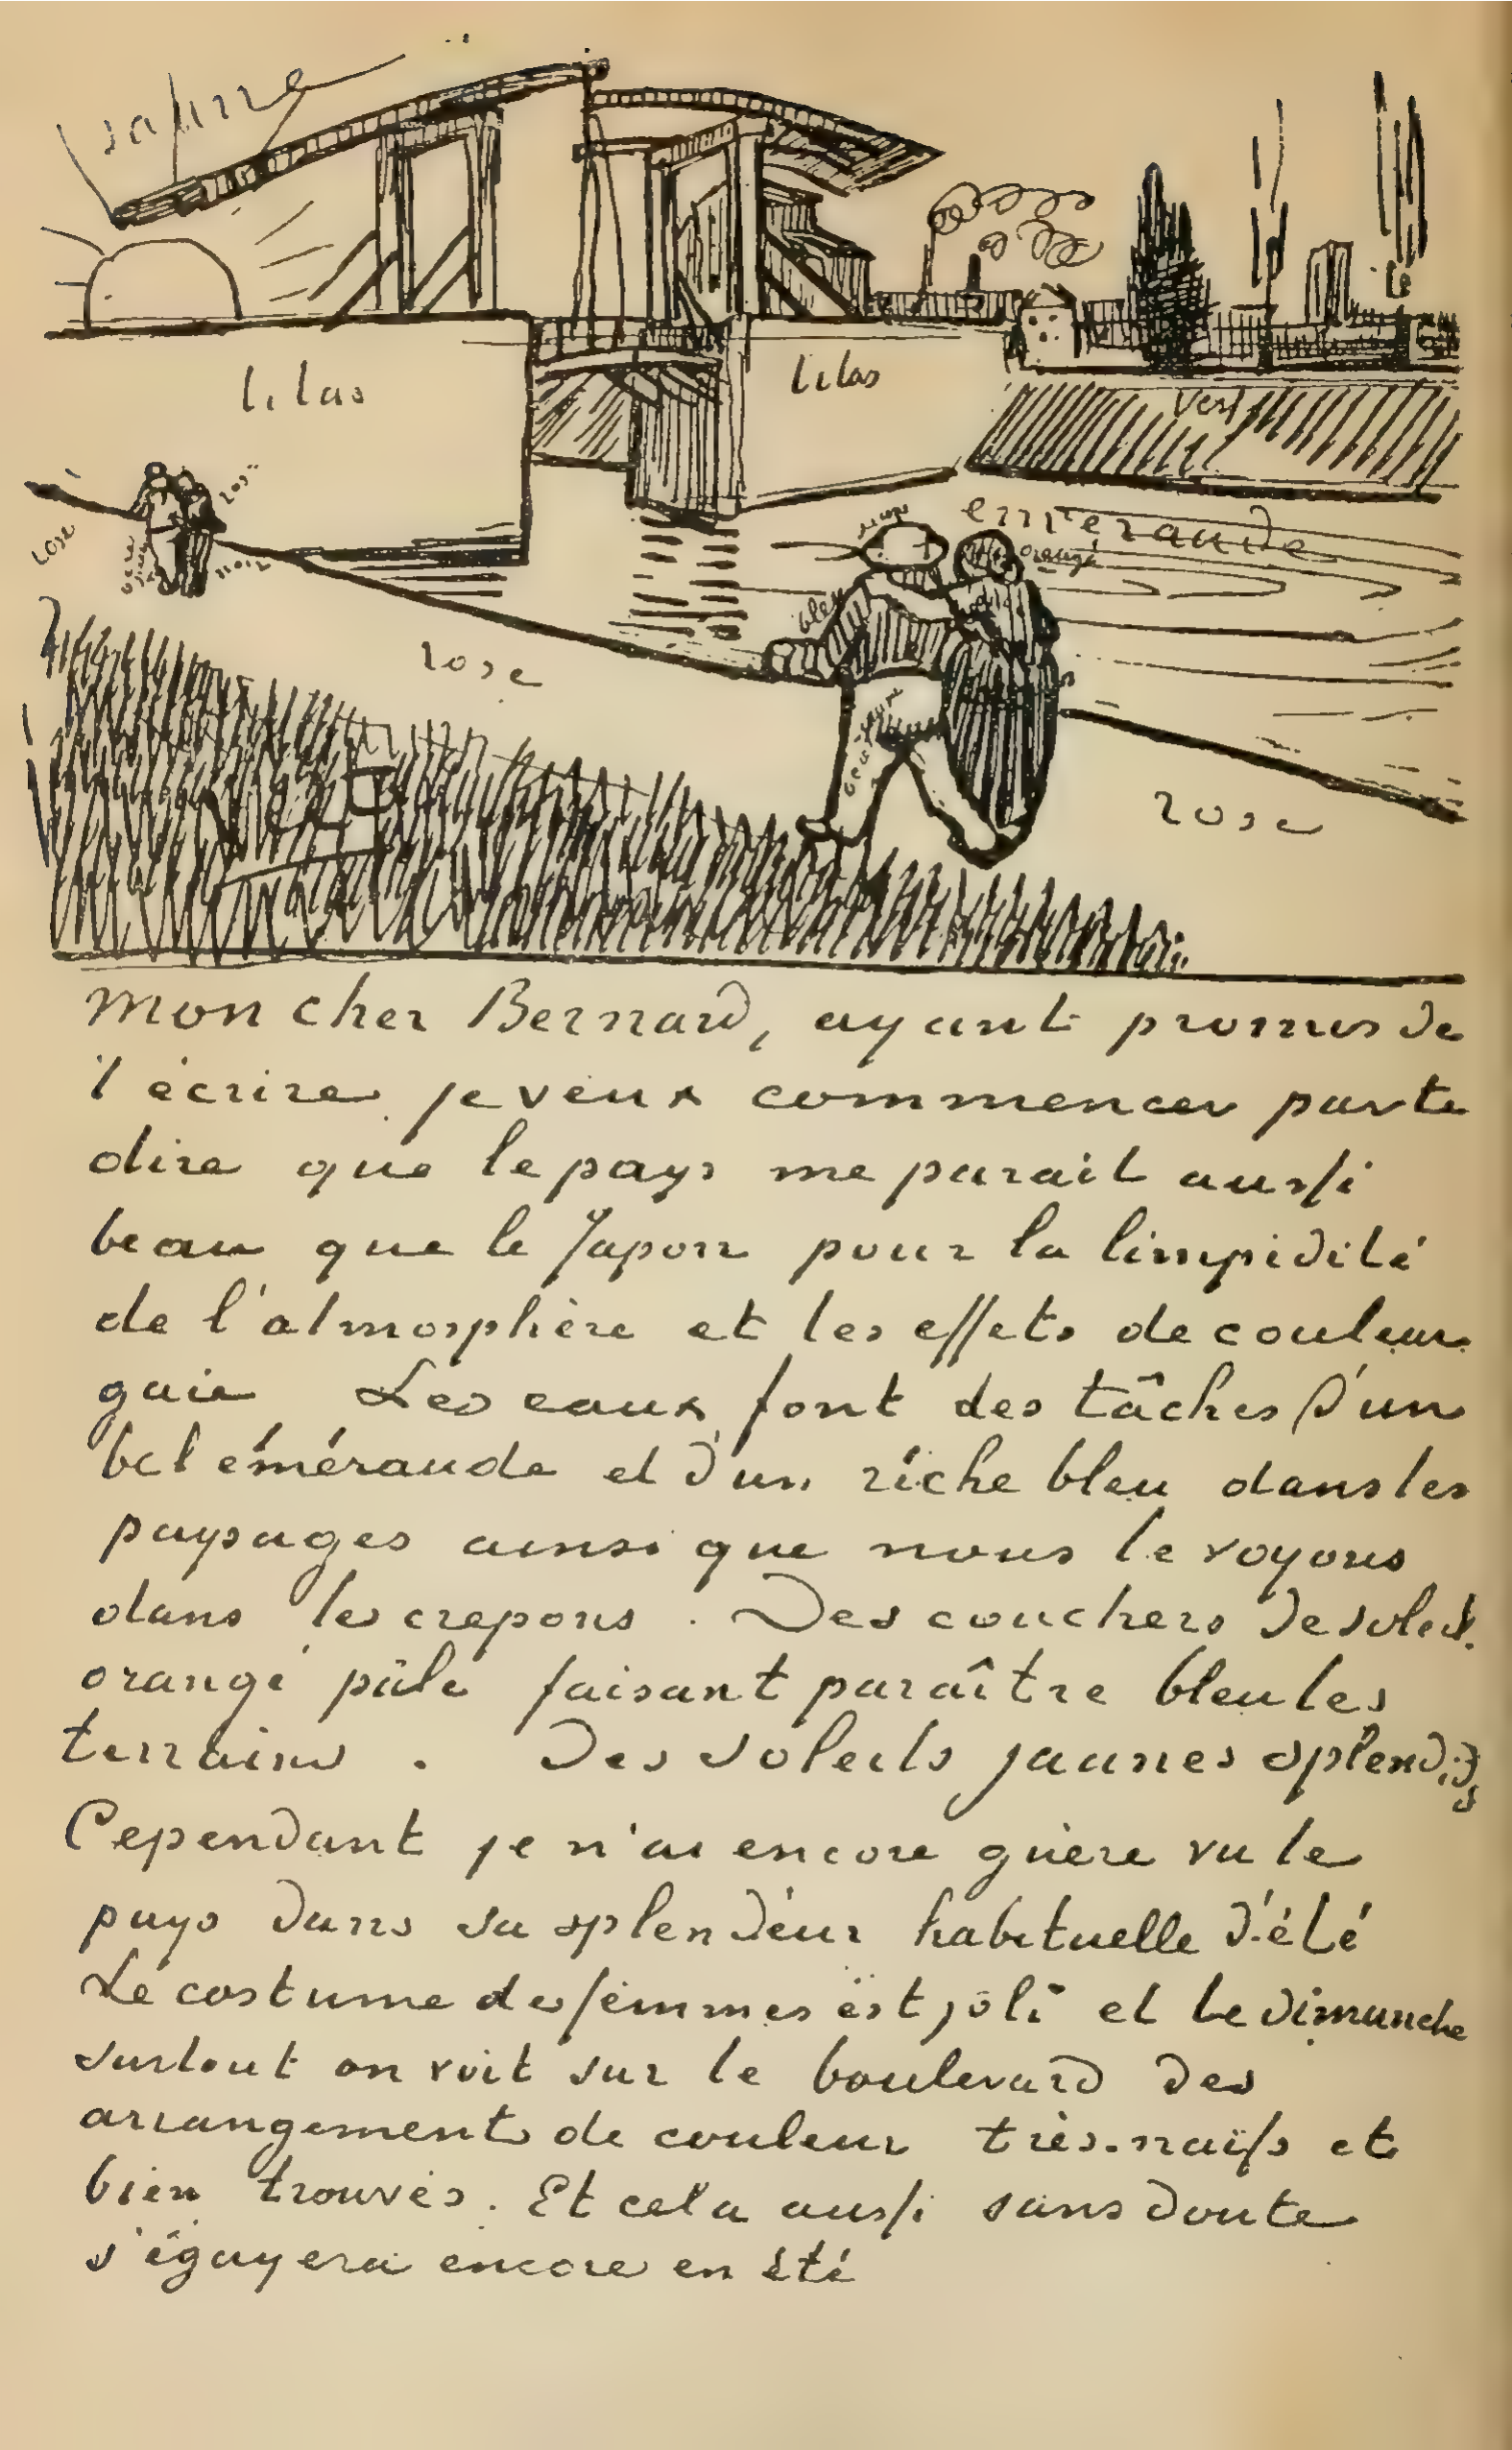 jaune
lilas
lilas
vert
emeraude
rose
orangé
bleu
noir
rose
rose
Mon cher Bernard, ayant promis de
t'écrire je veux commencer par te
dire que le pays me parait aussi
beau que le Japon pour la limpidité
de l'atmosphère et les effets de couleur
gaie Les eaux font des tâches d'un
bel éméraude et d'un riche bleu dans les
paysages ainsi que nous le voyons
dans les crepons. Des couchers de soleil
orangé pâle faisant paraître bleu les
terrains. Des soleils jaunes splendides
Cependant je n'ai encore guère vu le
pays dans sa splendeur habituelle d'été
Le costume des femmes est joli et le dimanche
surtout on voit sur le boulevard des
arrangements de couleur très naïfs et
bien trouvés. Et cela aussi sans doute
s'égayera encore en été